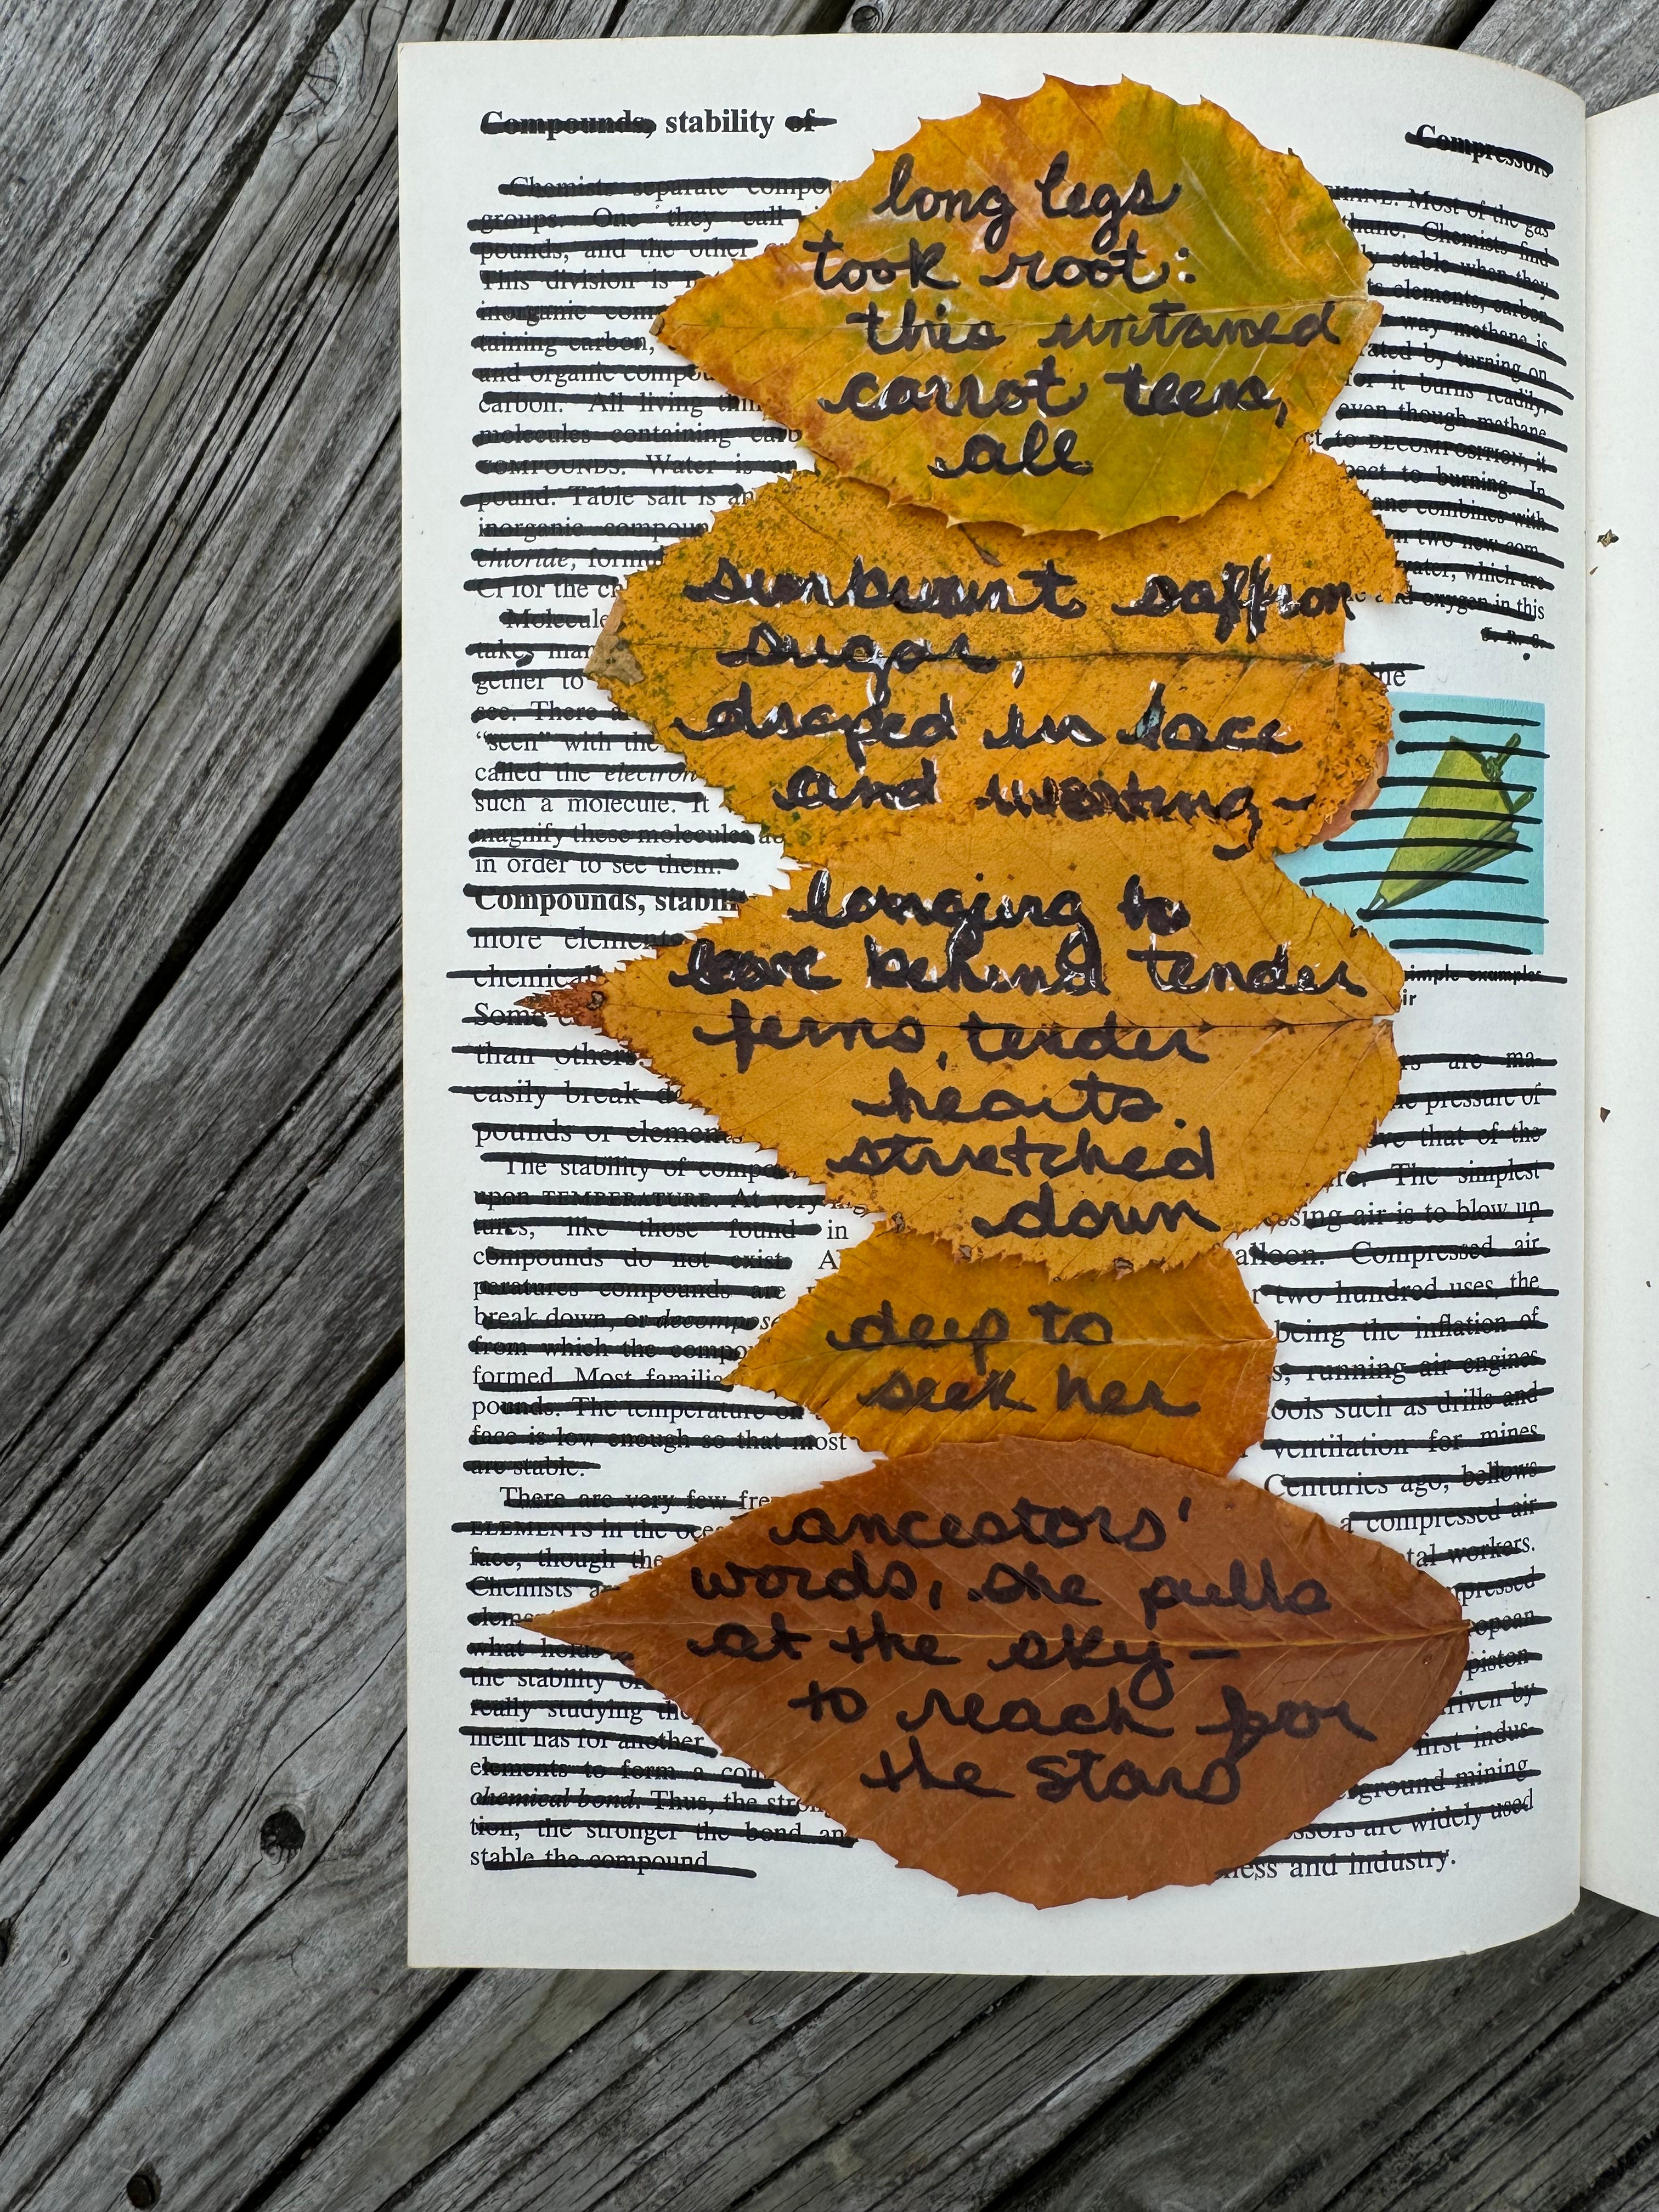 Compounds, stability of
Compressors
long legs
took root:
this untamed
carrot teen,
all
sunburnt saffron
sugar,
draped in lace
and wanting-
longing to
leave behind tender
ferns, tender
hearts.
stretched
down
deep to
seek her
ancestors'
words, she pulls
at the sky -
to reach for
the stars
Chemists separate
groups. One they call
pounds, and the other
This division is
inorganic
taining carbon,
and organic
carbon. All living
molecules containing
COMPOUNDS. Water is
pound. Table salt is an
inorganic
chloride,
Cl for the
Molecule
takes
gether to
see. There
"seen" with the
called the electron
such a molecule. It
magnify these molecules
in order to see them.
Compounds,
more elements
Some
than others.
easily break
pounds or elements
The stability of
upon TEMPERATURE. At very
tures, like those found in
compounds do not exist.
peratures compounds are
break down, or decompose
from which the
formed. Most
pounds. The temperature on
face is low enough so that most
are stable.
There are very few
ELEMENTS in the
face, though the
Chemists
what holds
the stability
really studying
ment has for another
elements to form a
chemical bond. Thus, the
tion, the stronger the bond
stable the compound
Most of the gas
Chemists find
stable when they
elements, carbon
way methane is
by turning on
for it burns readily.
even though methane
to DECOMPOSITION, it
to burning. In
combines with
two new com-
water, which are
and oxygen in this
J. R. S.
simple examples
are ma-
pressure of
that of the
The simplest
air is to blow up
Compressed air
two hundred uses, the
being the inflation of
running air engines
such as drills and
ventilation for mines
Centuries ago, bellows
a compressed air
workers.
piston
driven by
first indus-
mining
are widely used
and industry.